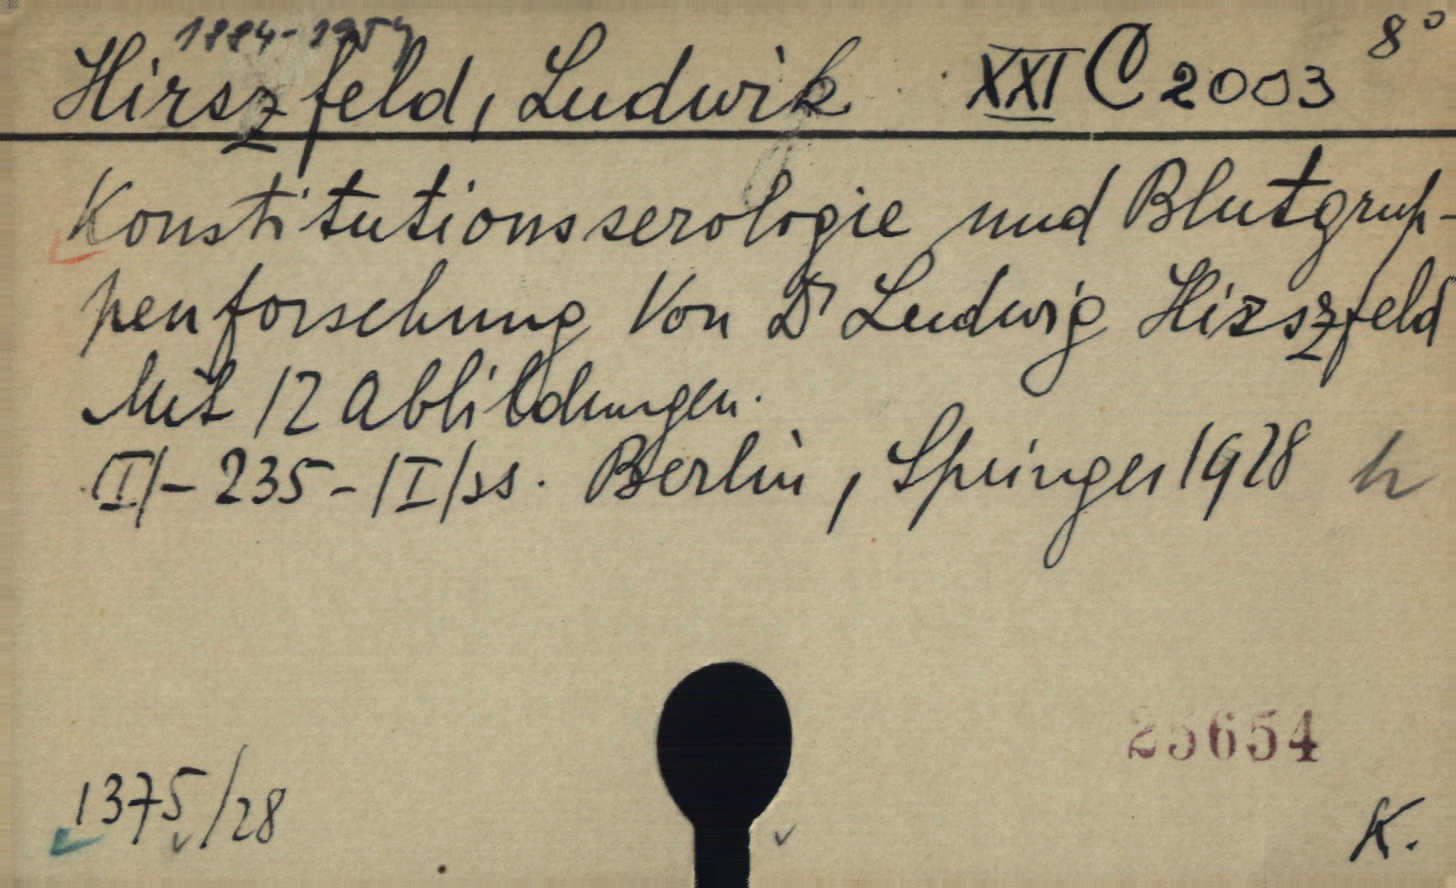 1884-1954
Hirszfeld, Ludwik XXI C 2003 8°
Konstitutionsserologie und Blutgrup-
penforschung Von Dr Ludwig Hirszfeld
Mit 12 Abbildungen.
/I/-235-/I/ss. Berlin, Springer 1928 h
25654
1375/28
K.